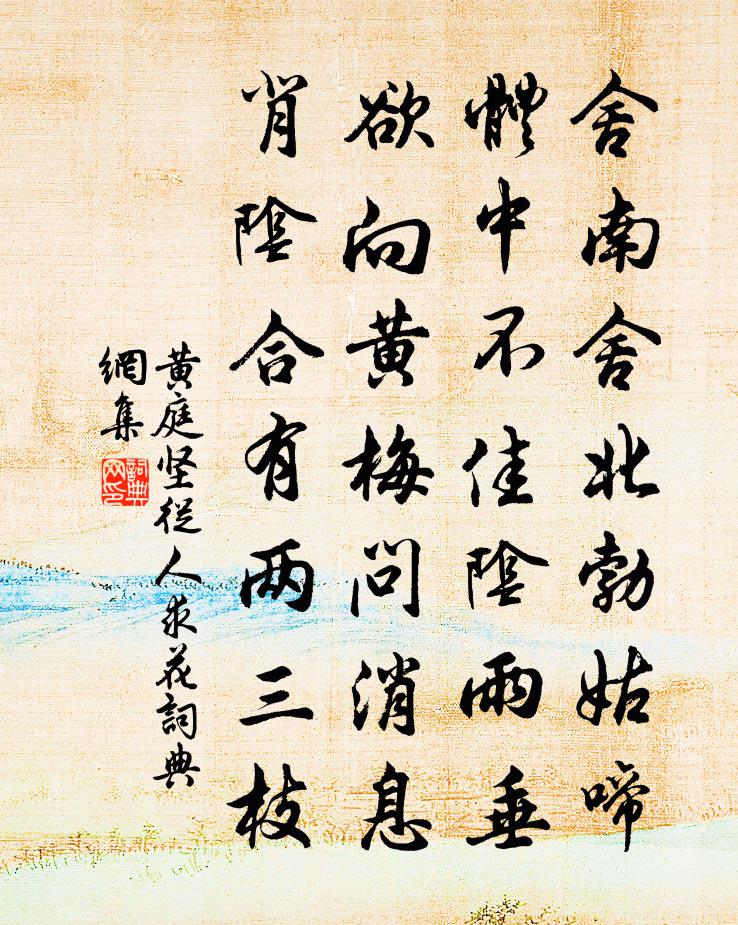 舍南舍北勃姑啼
體中不佳陰雨垂
欲向黄梅問消息
背陰合有两三枝
黄庭坚從人求花詞典
網集
詞典
网印